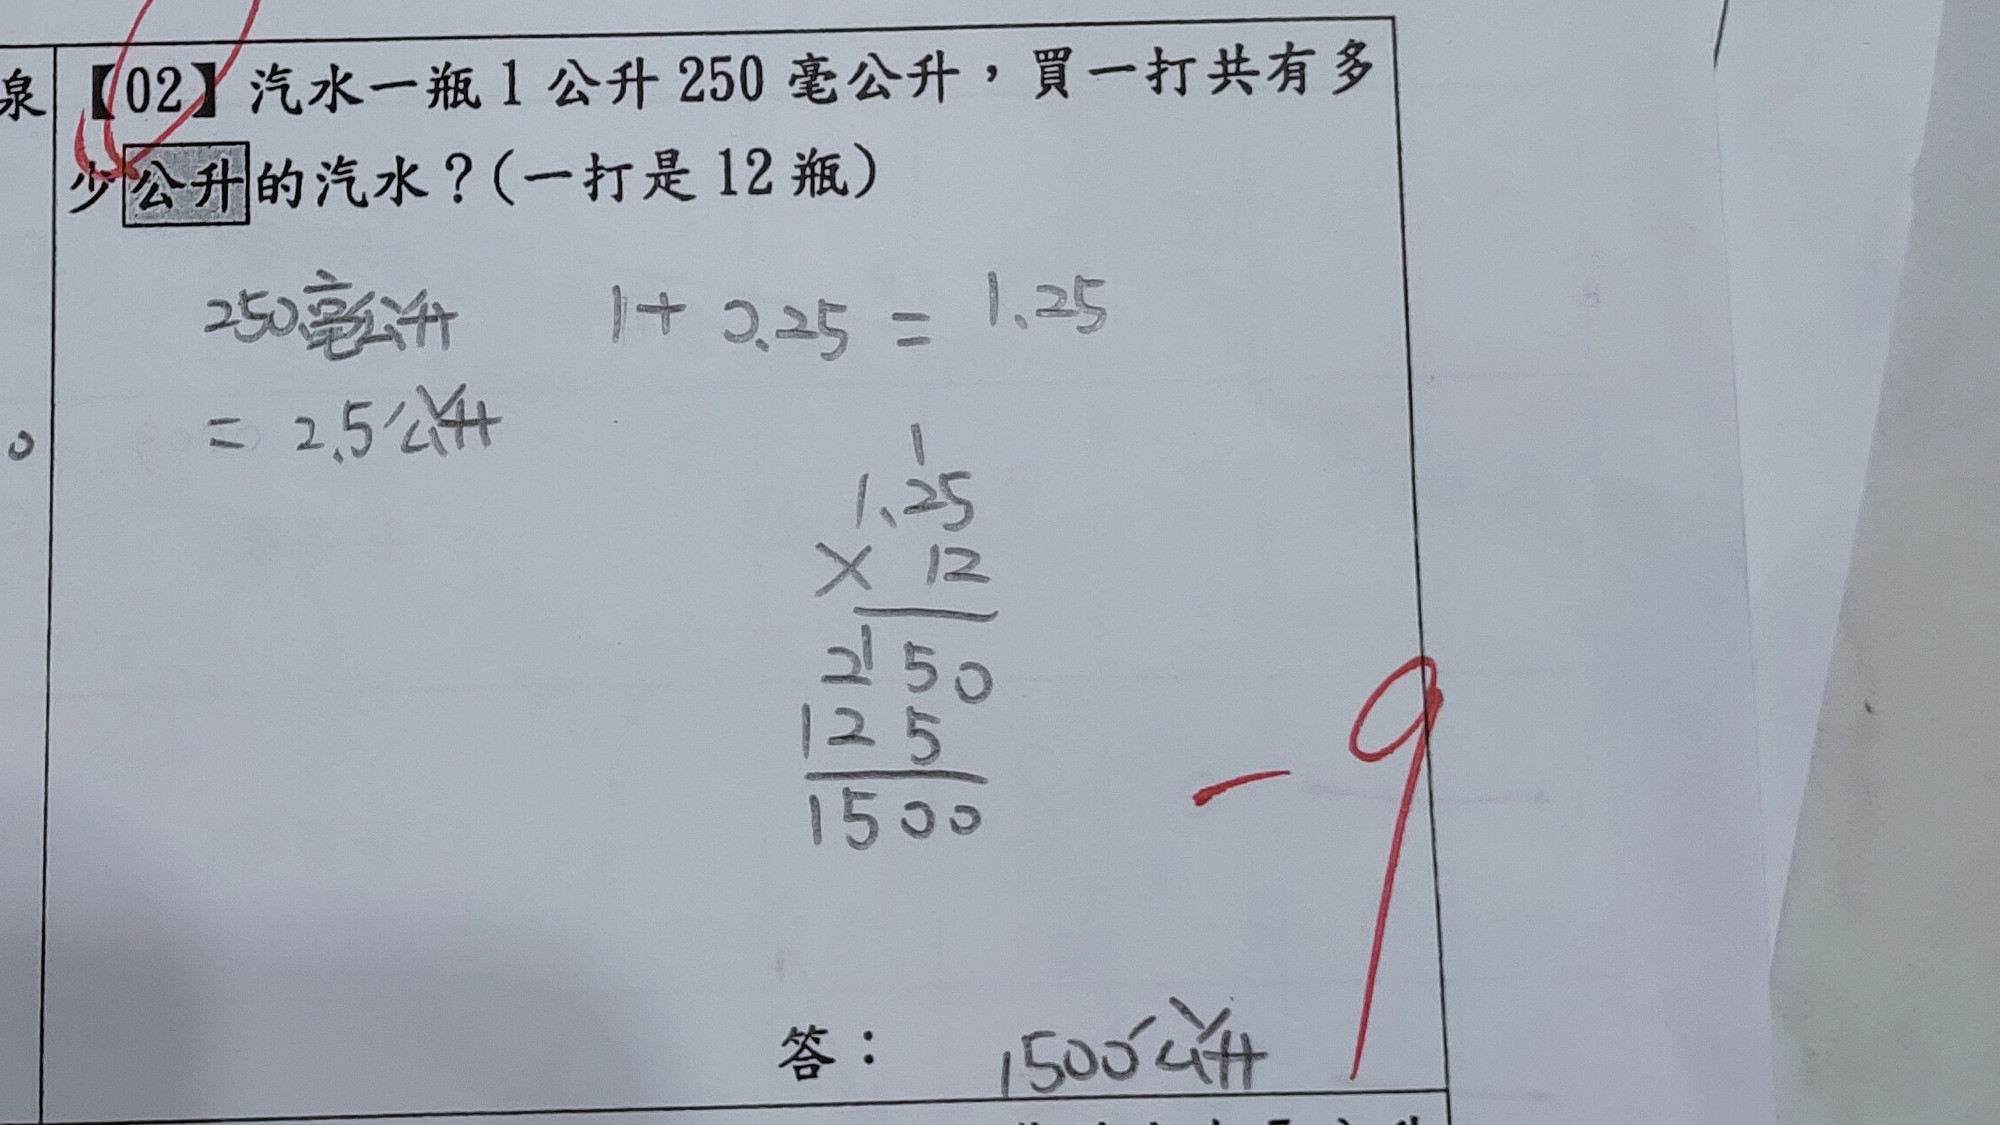 泉
【02】汽水一瓶 1 公升 250 毫公升，買一打共有多
少公升的汽水？(一打是 12 瓶)
250毫公升 1+ 0.25 = 1.25
= 2.5公升
。
1
1.25
× 12
2150
125
1500
-9
答： 1500公升